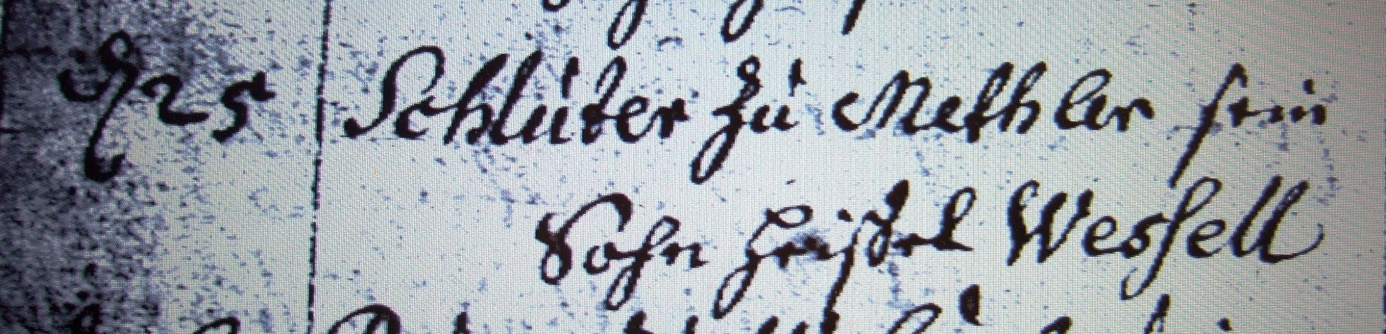 25 Schlüter zu Methler sein
Sohn heißet Wessell